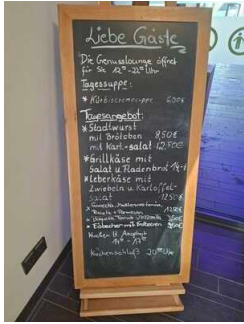 Liebe Gäste
Die Genusslounge öffnet
für Sie 12°°-22°° Uhr
Tagessuppe:
* Kürbiscremesuppe 6,00€
Tagesangebot:
* Stadtwurst
mit Brötchen 8,50€
mit Kart.-salat 12,50€
* Grillkäse mit
Salat u. Fladenbrot 14,-€
* Leberkäse mit
Zwiebeln u. Kartoffel-
salat 12,50€
* Eisbecher mit
Kuchen lt. Angebot
14°° - 17°°
Küchenschluß 20°° Uhr